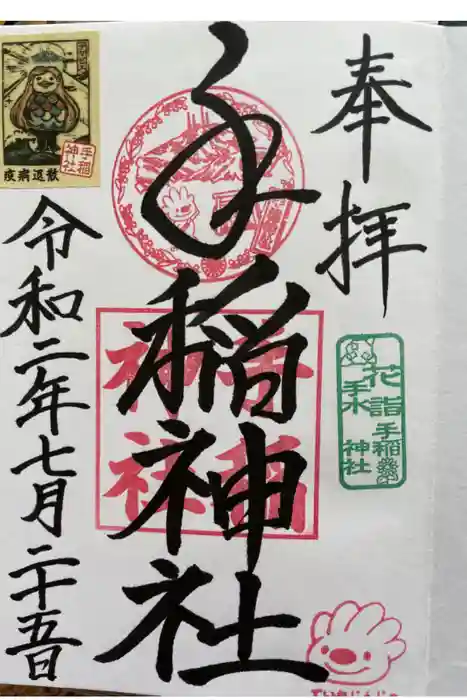 奉拝
手稲神社
令和二年七月二十五日
疫病退散
手稲
神社
手稲
神社
花詣
手水
手稲
神社